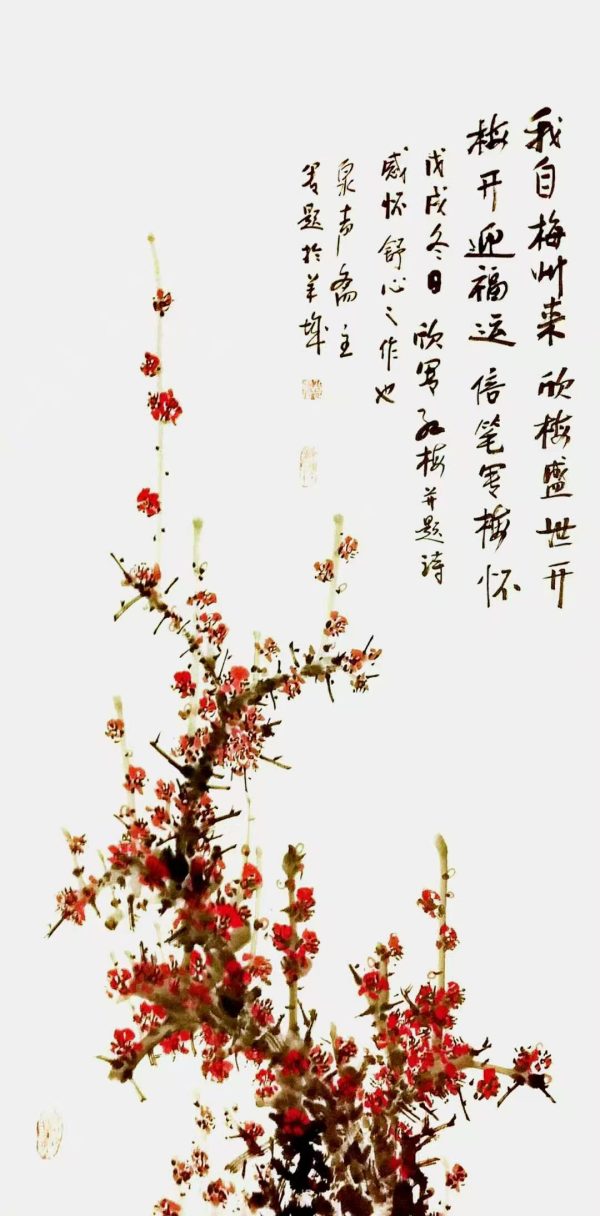 我自梅州来 欣梅盛世开
梅开迎福运 倍笔写梅怀
戊戌冬日 欣写红梅并题诗
感怀舒心之作也
泉声斋主
客题于羊城